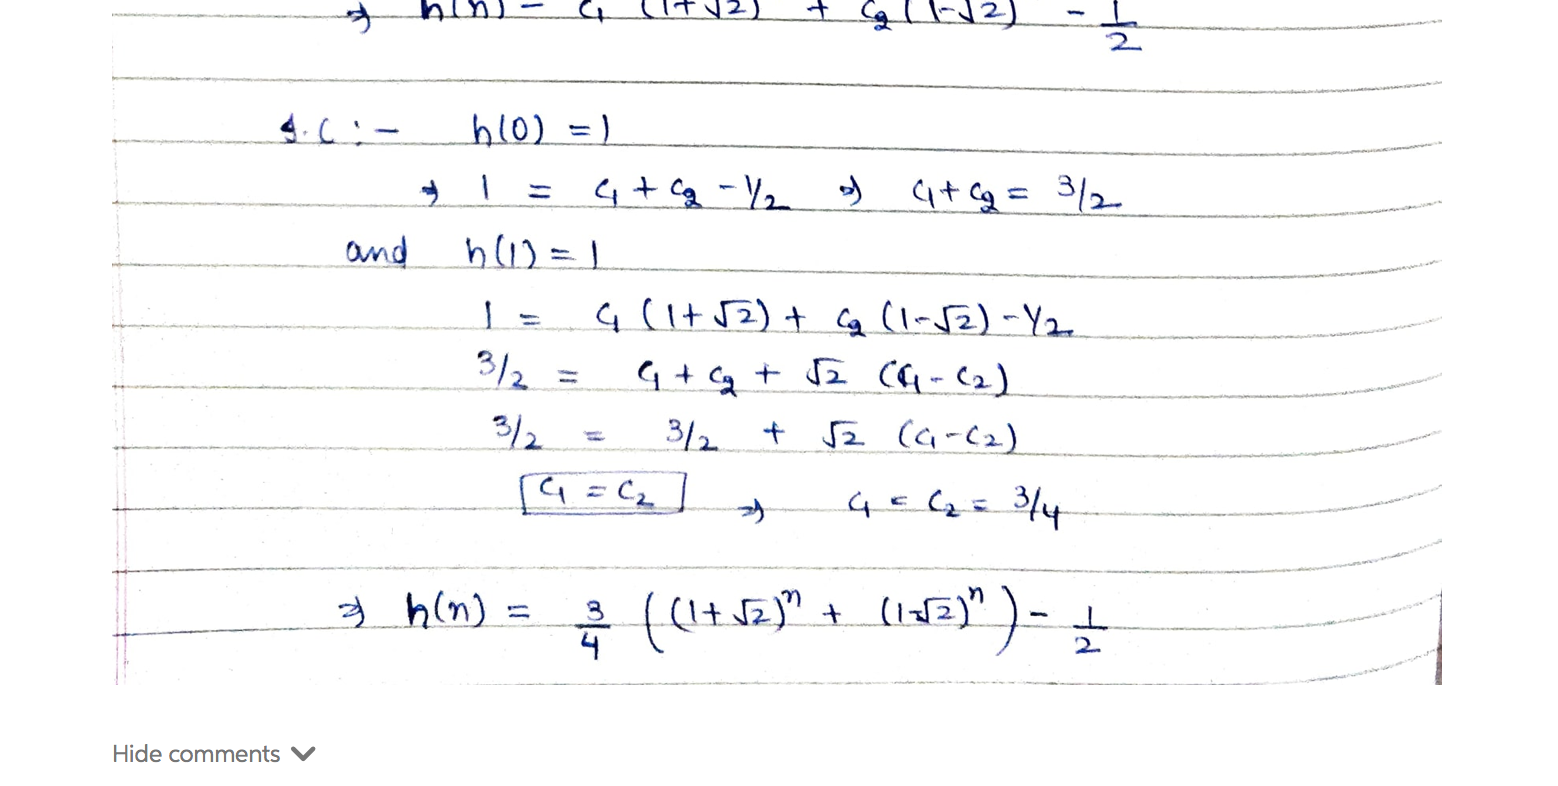 ⇒ h(n) = C₁ (1+√2) + C₂ (1-√2) - 1/2
I.C :- h(0) = 1
⇒ 1 = C₁ + C₂ - 1/2 ⇒ C₁ + C₂ = 3/2
and h(1) = 1
1 = C₁ (1+√2) + C₂ (1-√2) - 1/2
3/2 = C₁ + C₂ + √2 (C₁ - C₂)
3/2 = 3/2 + √2 (C₁ - C₂)
C₁ = C₂ ⇒ C₁ = C₂ = 3/4
⇒ h(n) = 3/4 ( (1+√2)ⁿ + (1-√2)ⁿ ) - 1/2
Hide comments